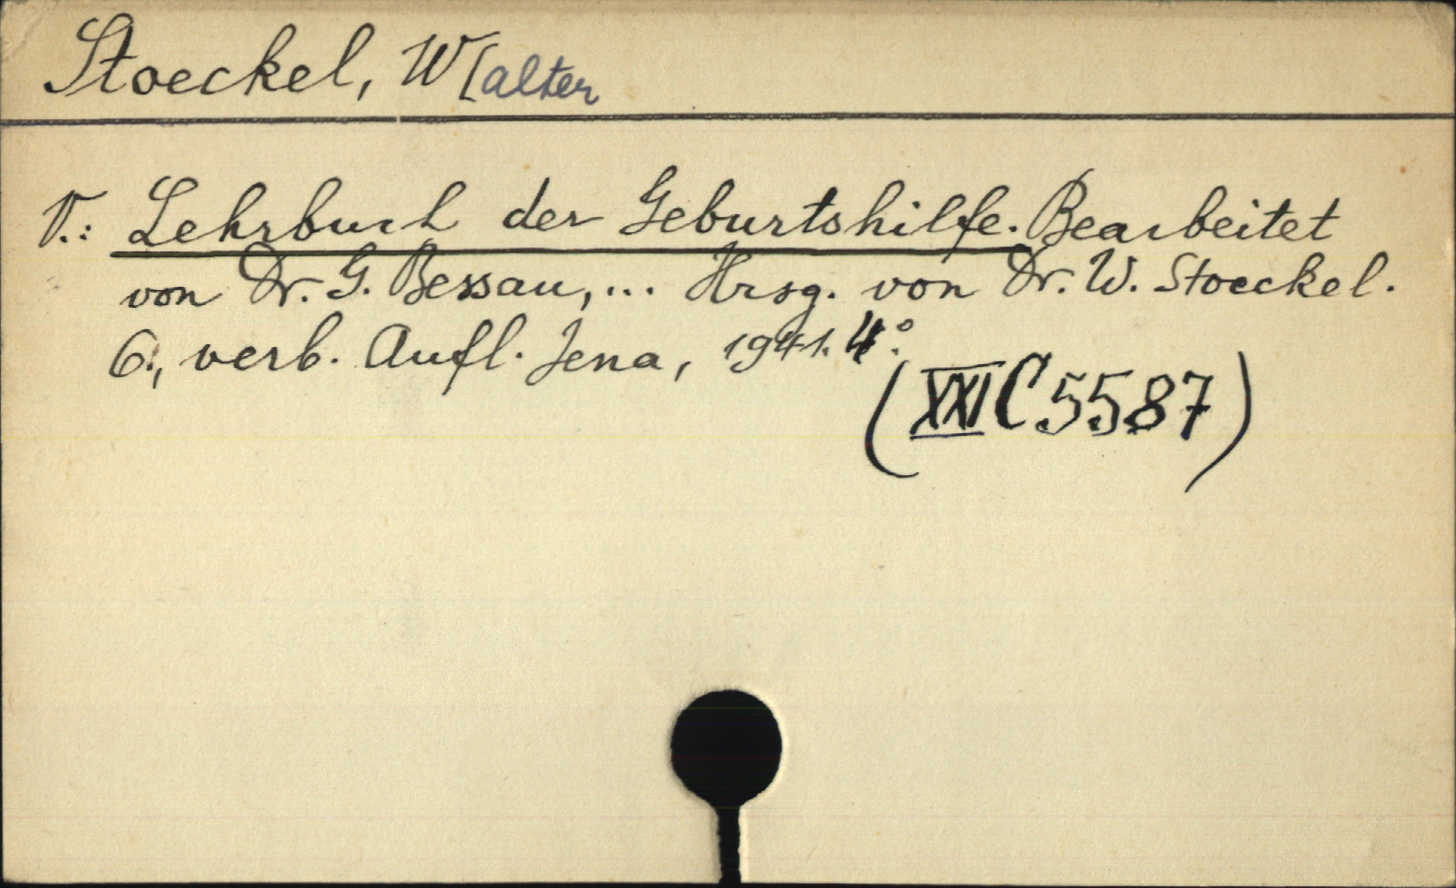 Stoeckel, W[alter
V.: Lehrbuch der Geburtshilfe. Bearbeitet
von Dr. G. Bessau, ... Hrsg. von Dr. W. Stoeckel.
6., verb. Aufl. Jena, 1941. 4°.
(XXI C 5587)